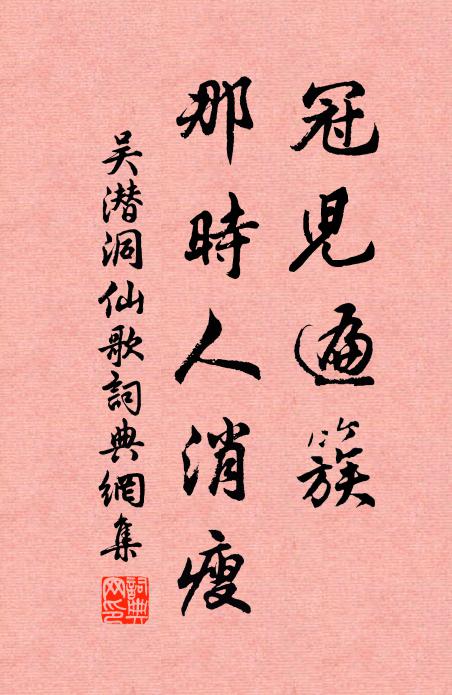 冠兒遍簇
那時人消瘦
吴潜洞仙歌詞典網集
詞典網印